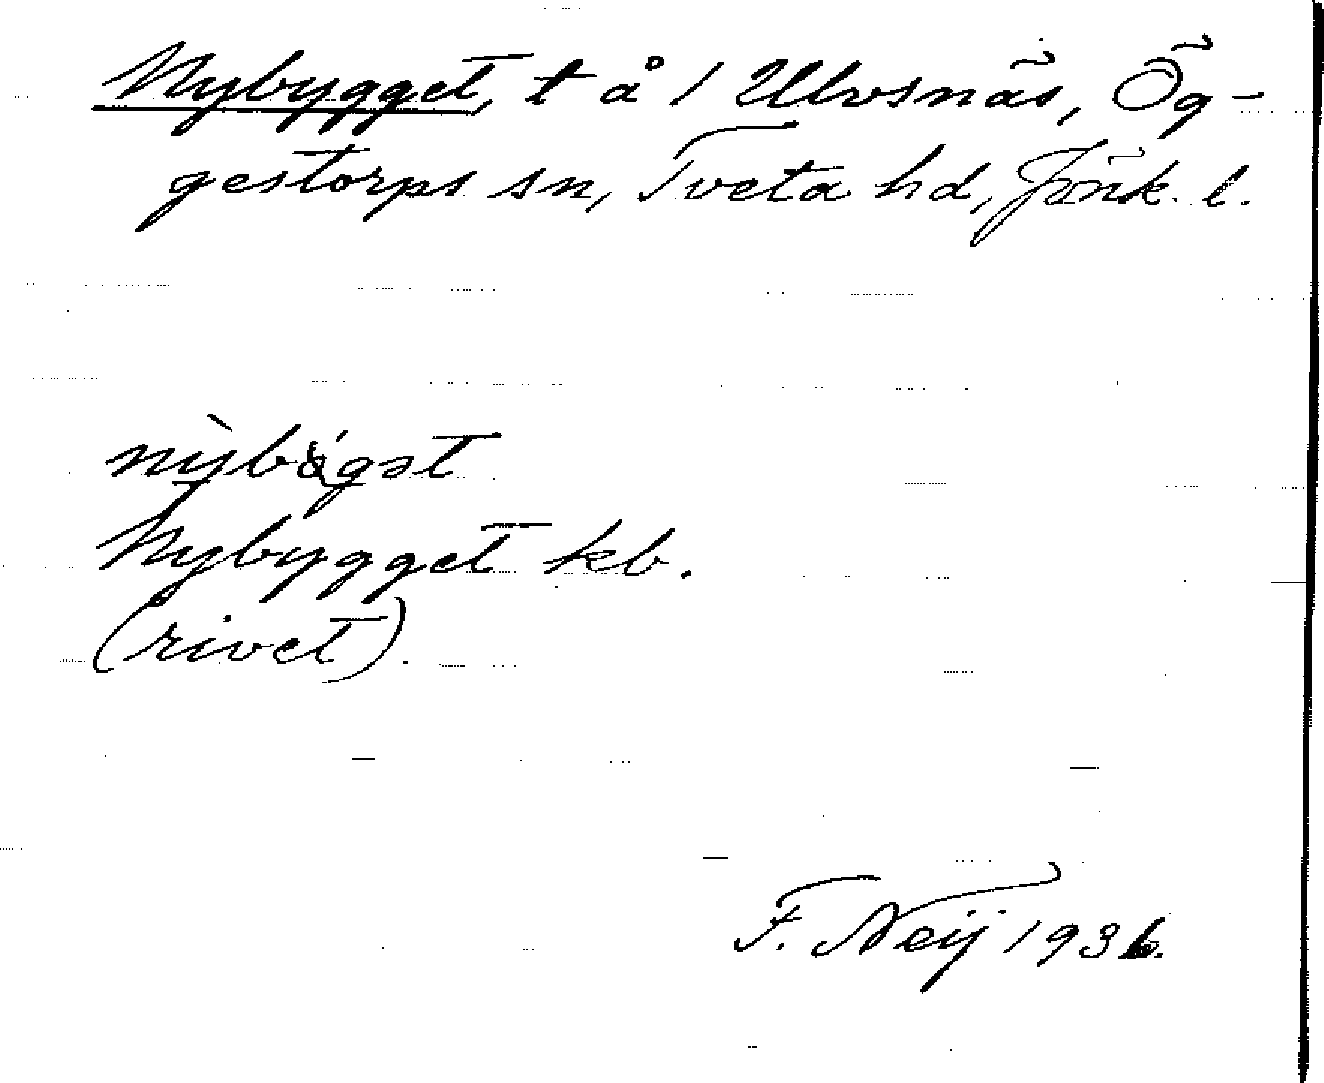 Nybygget, t å 1 Ulvsnäs, Ög-
gestorps sn, Tveta hd, Jönk. l.
Nybygget kb.
(rivet).
F. Neij 1936.